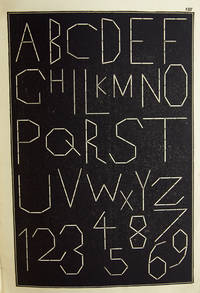 ABCDEF
GHIJLKMNO
PQRST
UVWXYZ
1234567
89